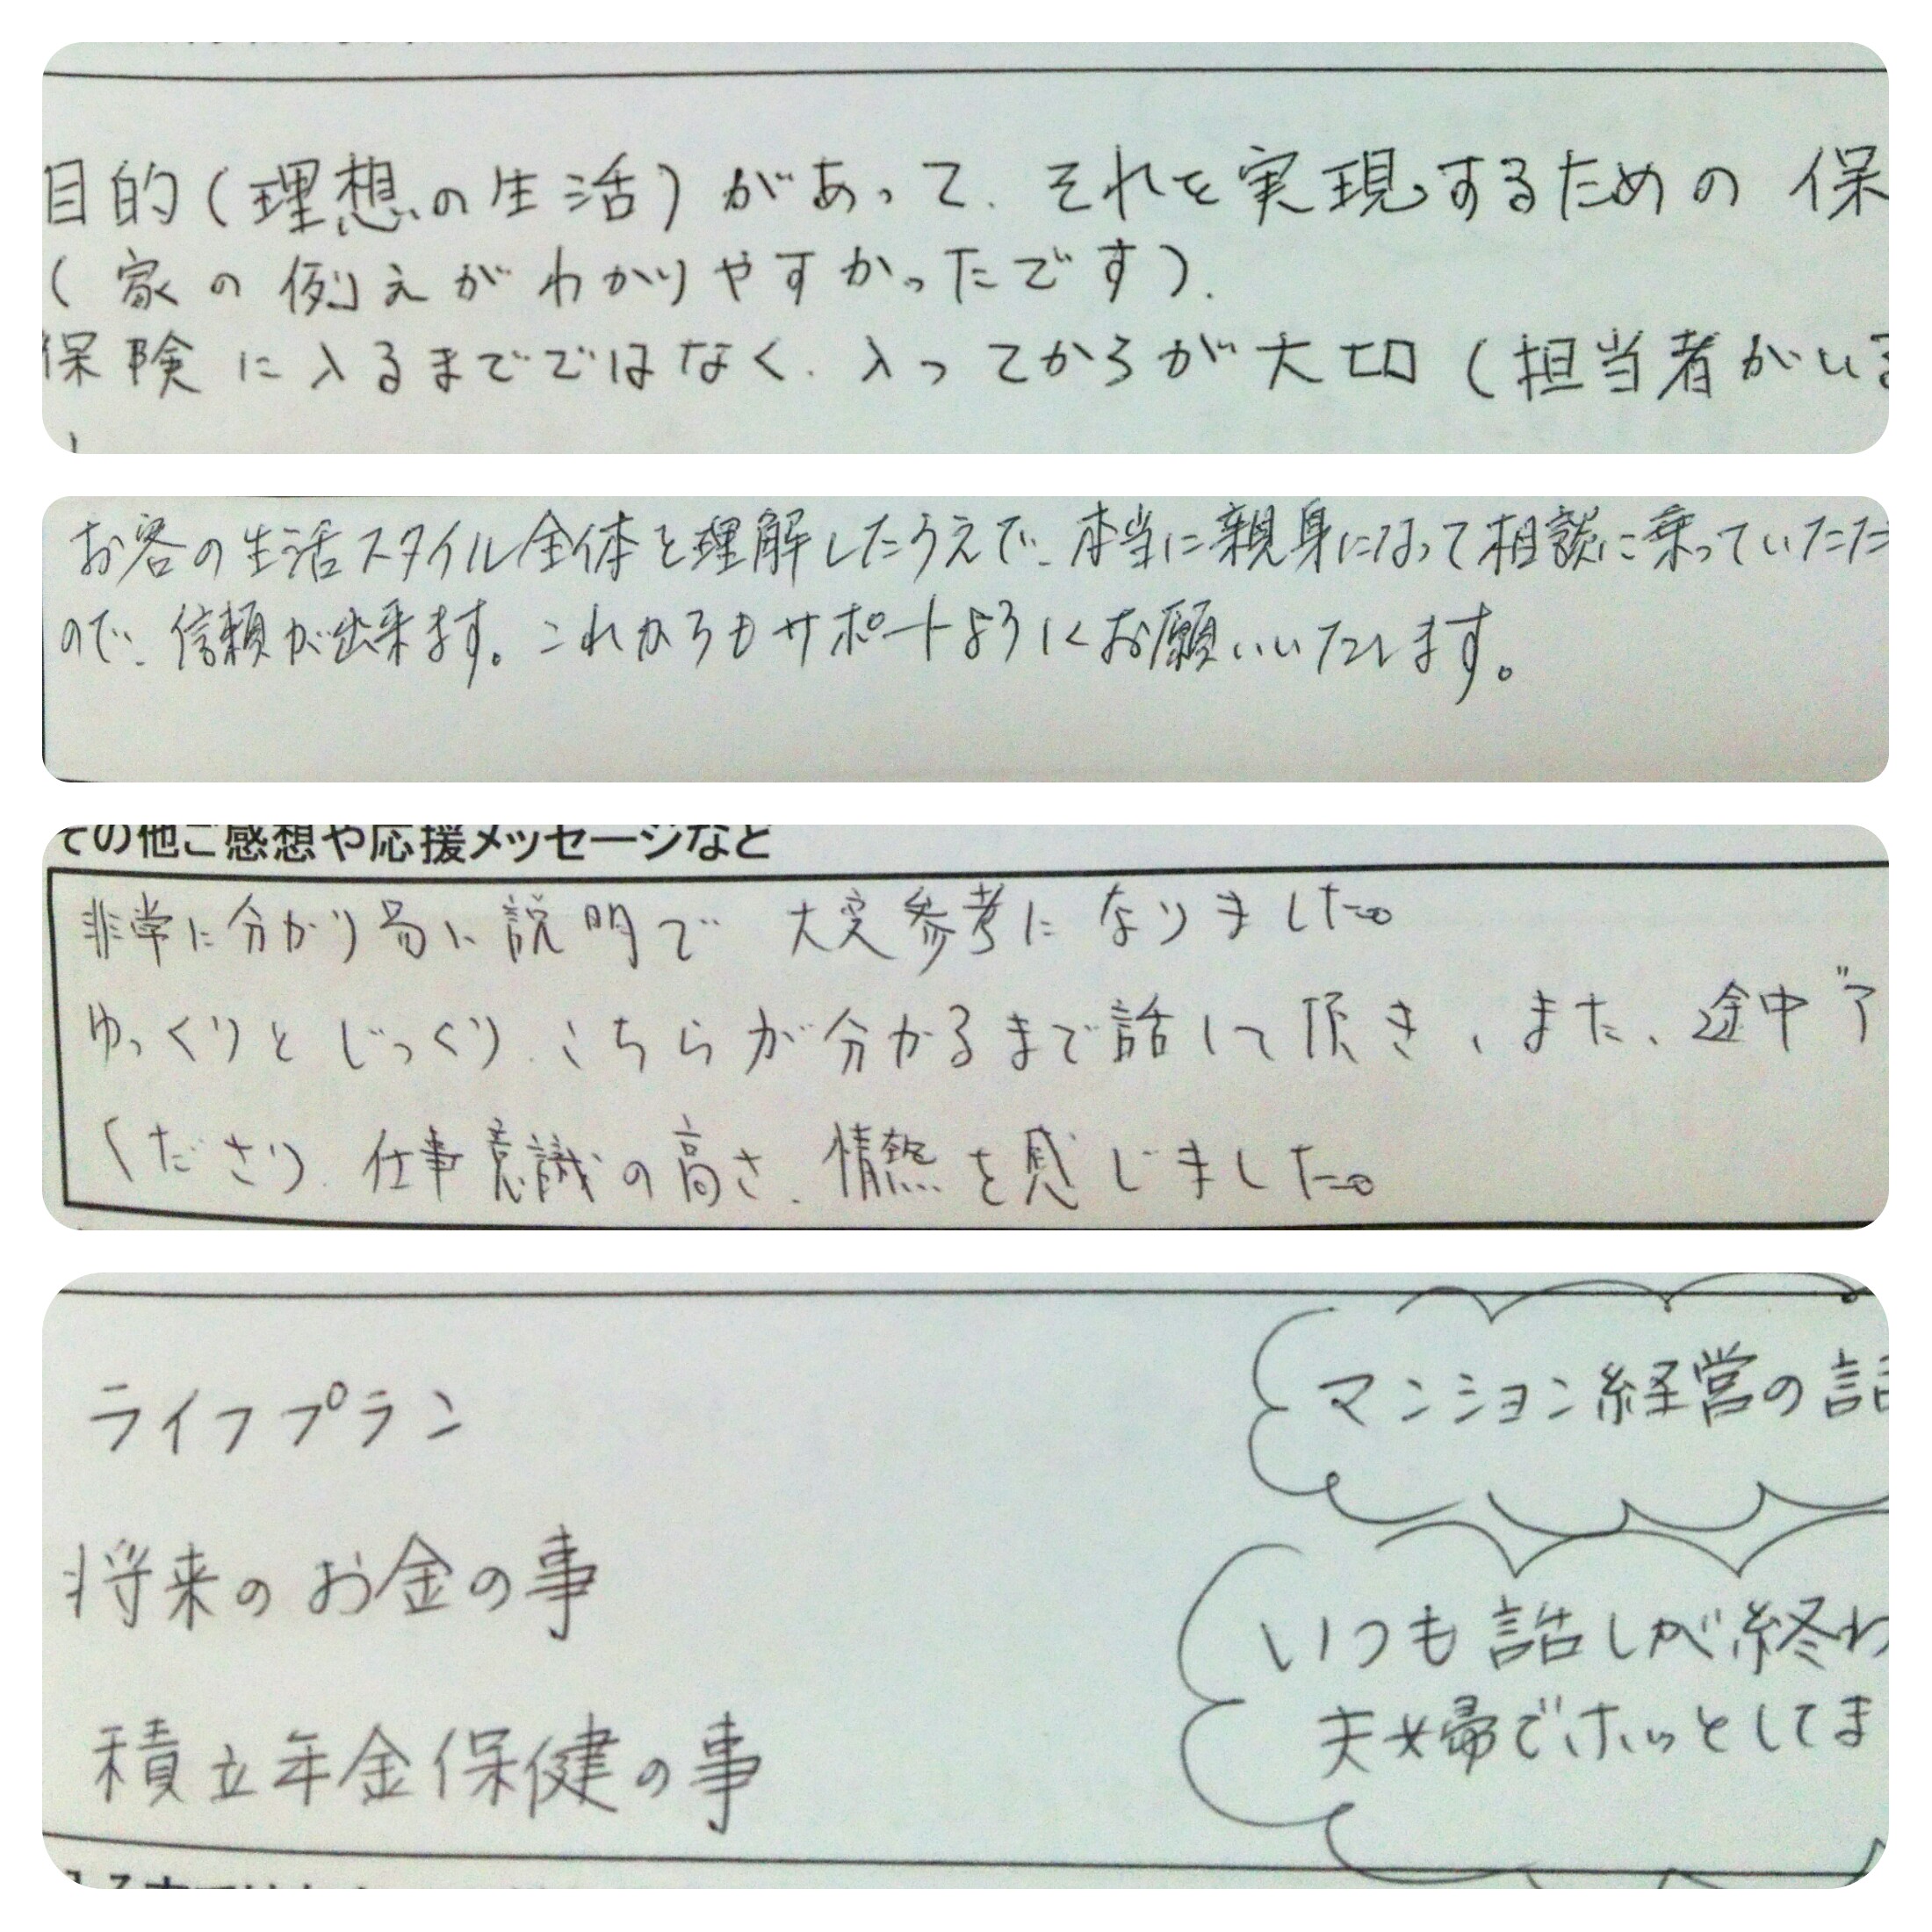 目的(理想の生活)があって、それを実現するための 保
(家の例えがわかりやすかったです).
保険に入るまでではなく、入ってからが大切(担当者がいる
お客の生活スタイル全体を理解したうえで、本当に親身になって相談に乗っていただ
ので、信頼が出来ます。これからもサポートよろしくお願いいたします。
その他ご感想や応援メッセージなど
非常に分かり易い説明で 大変参考になりました。
ゆっくりとじっくり、こちらが分かるまで話して頂き、また、途中
くださり、仕事意識の高さ、情熱を感じました。
ライフプラン
将来のお金の事
積立年金保健の事
マンション経営の話
いつも話しが終わ
夫婦でホッとしてま